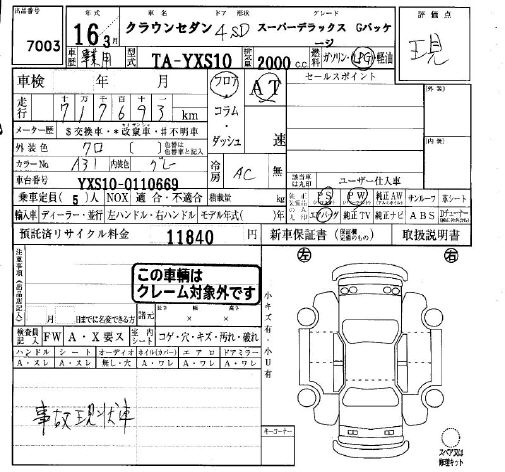 出品番号 年式 車名 ドア 形状 グレード 評価点
7003 16年3月 クラウンセダン 4SD スーパーデラックス Gパッケージ 現
車歴 型式 TA-YXS10 排気量 2000 c.c. 燃料 ガソリン・LPG・軽油
車検 年 月 フロア AT セールスポイント 外装
走行 十 万 千 百 十 一
717693 km コラム・ダッシュ 速
メーター歴 $交換車・*改ざん車・#不明車 内装
外装色 クロ 色替車は元色( )色替車と記入 冷房 AC 無 ユーザー仕入車
カラーNo. A31 内装色 グレー
車台番号 YXS10-0110669
乗車定員(5)人 NOX 適合・不適合 積載量 kg PS PW 純正AW サンルーフ 革シート
輸入車 ディーラー・並行 左ハンドル・右ハンドル モデル年式( )年 エアバッグ 純正TV 純正ナビ ABS
預託済リサイクル料金 11840 円 新車保証書 取扱説明書
左 右
注意事項
この車輌は
クレーム対象外です
小キズ有・小U有
月 日までに名変できる方 諸元 長さ 幅 高さ
検査員記入 FW A・X要ス 室内シート コゲ・穴・キズ・汚れ・破れ
ハンドル シート オーディオ ホイル(カバー) エアロ ドアミラー
A・スレ A・スレ 無し・穴 A・ワレ A・ワレ A・ワレ
事故現状車
キーコーナー
スペア又は
修理キット